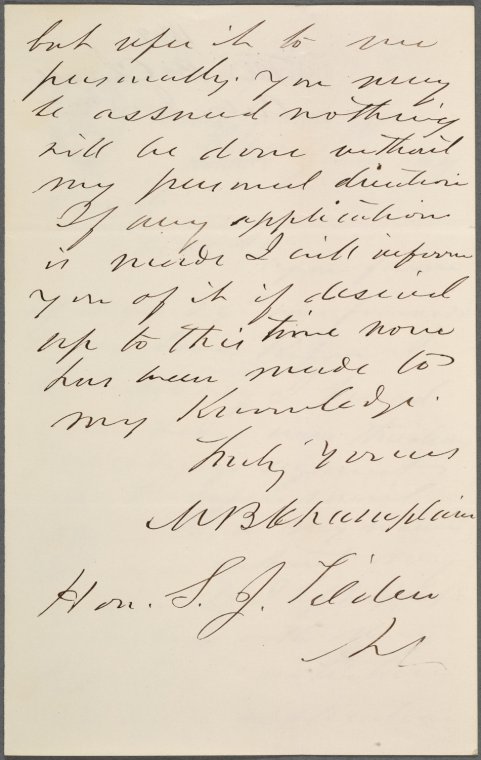 but refer it to me
personally. You may
be assured nothing
will be done without
my personal direction
If any application
is made I will inform
you of it if desired
up to this time none
has been made to
my Knowledge.
Truly Yours
M B Champlain
Hon. S. J. Tilden